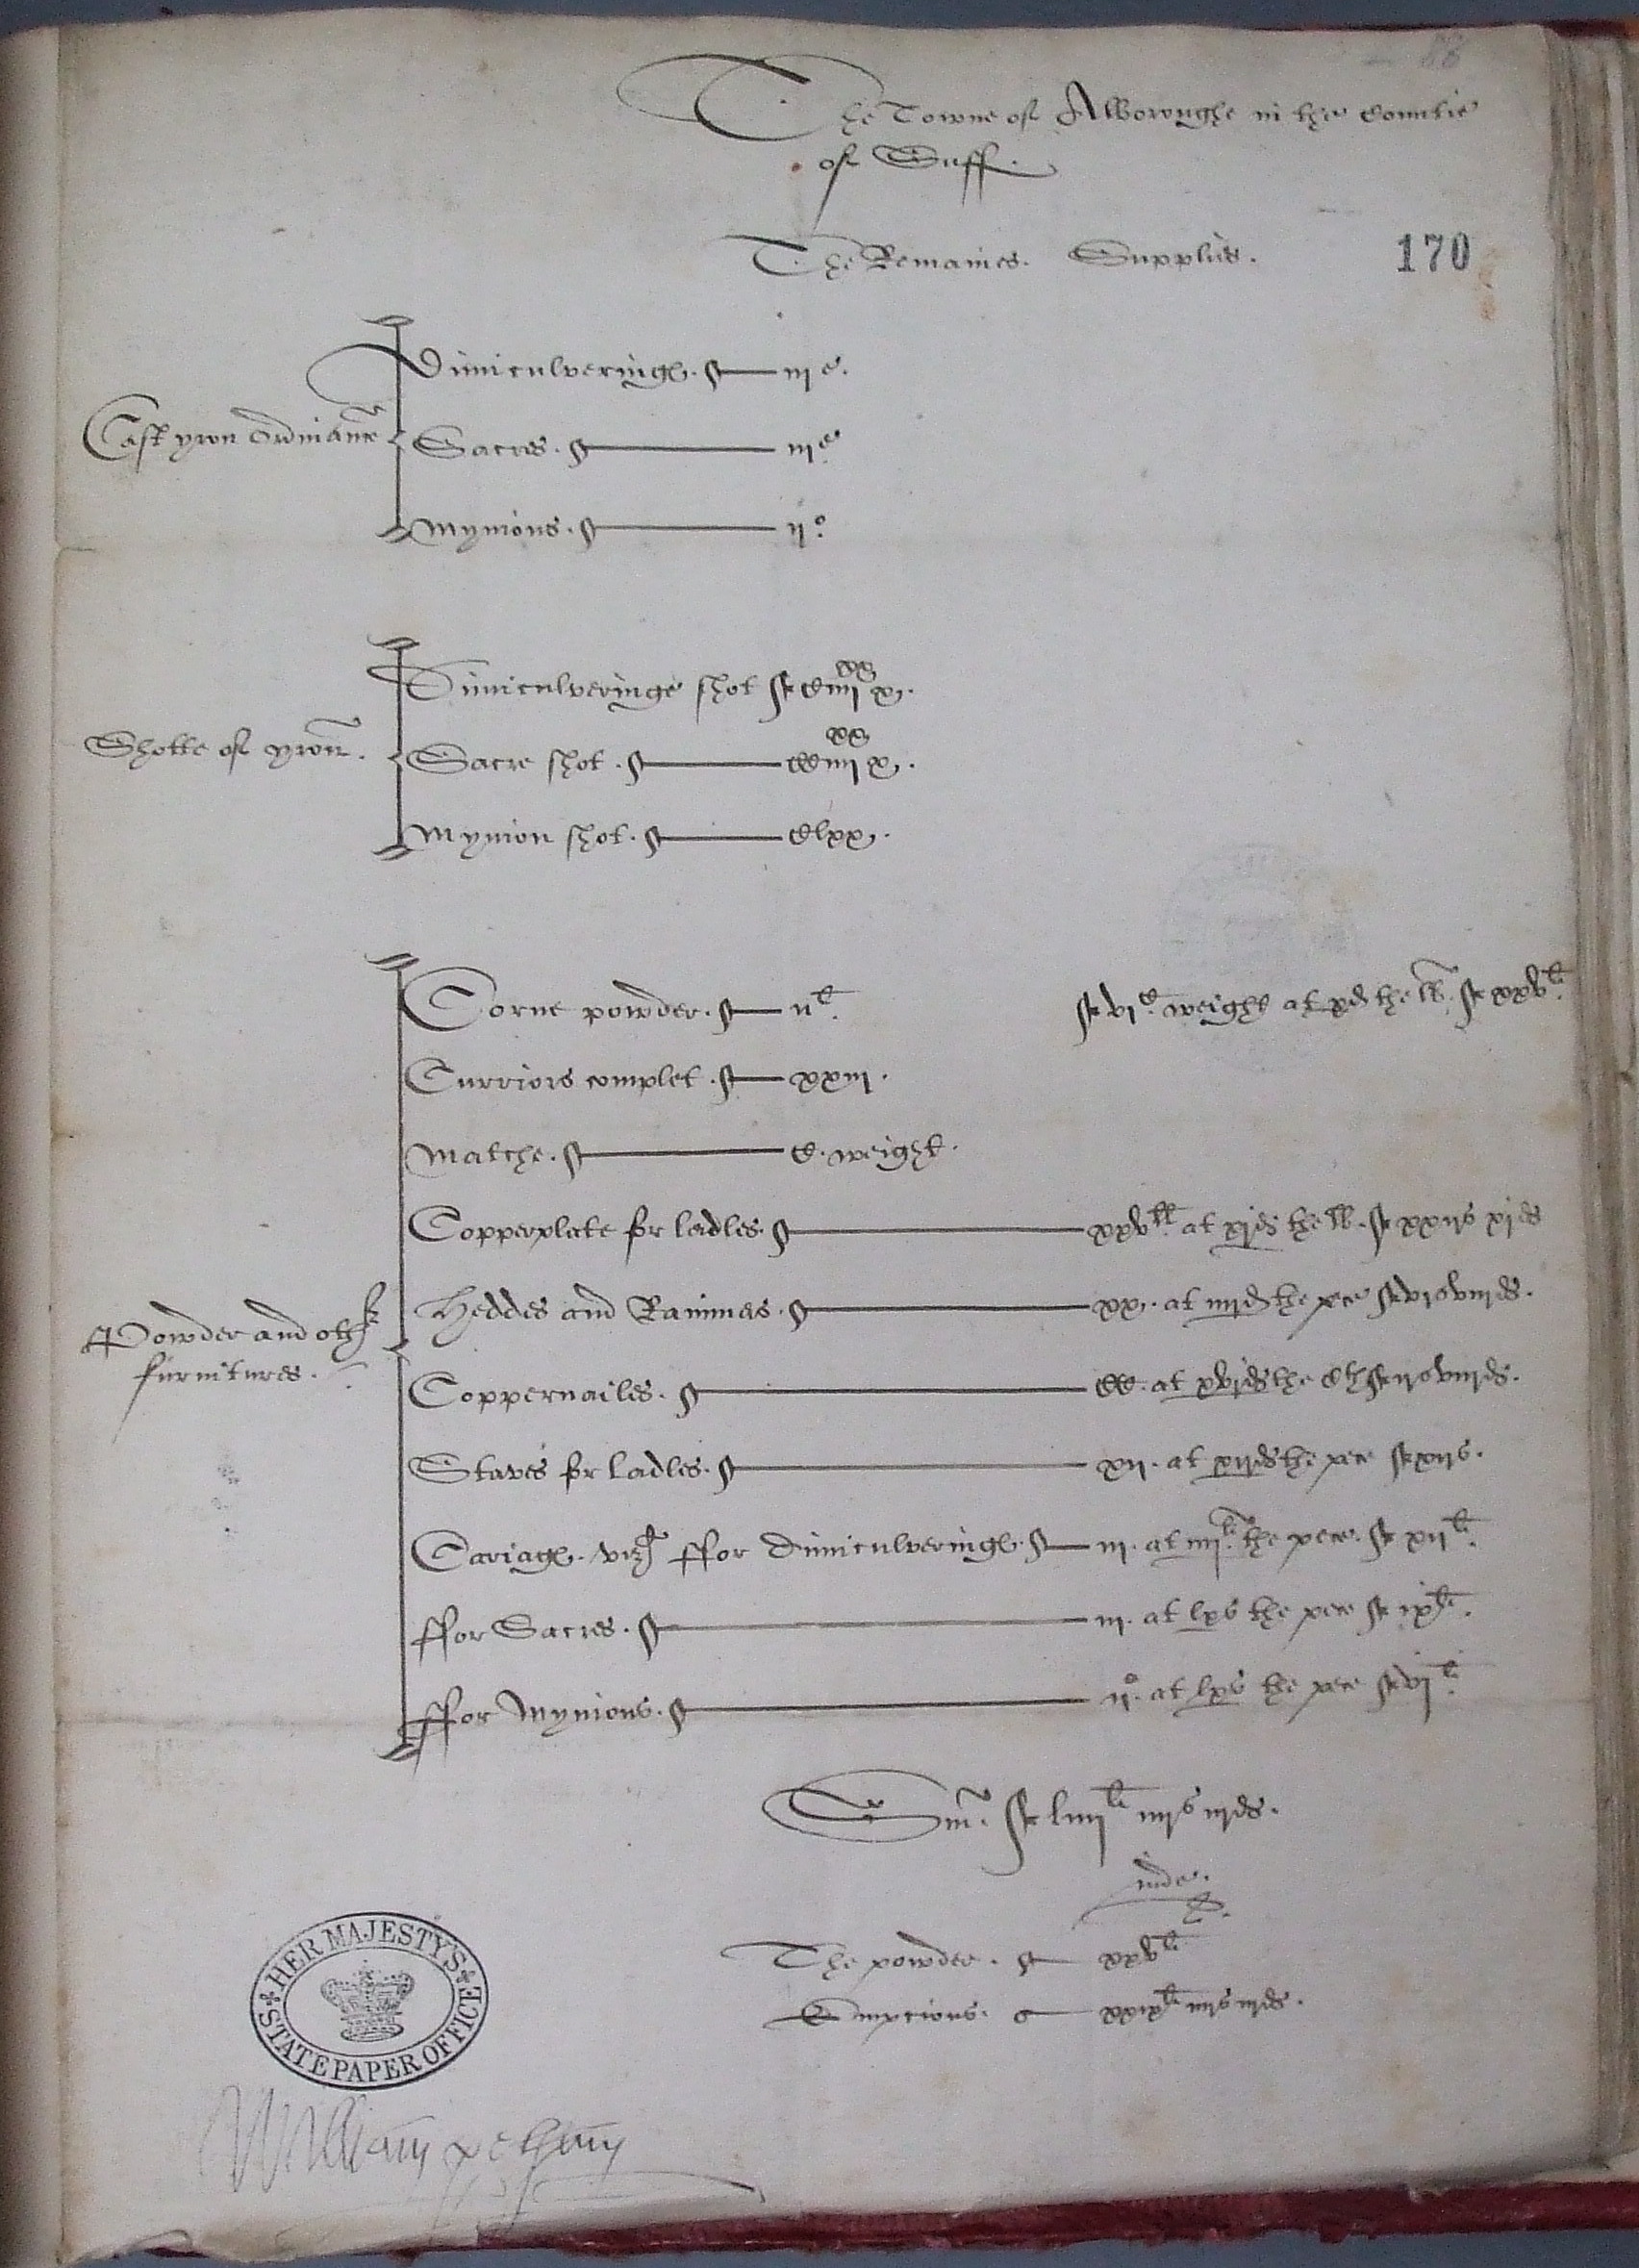 88
The Towne of Alborowghe in the Countie
of Suff.
The Remaines. Supplies.
170
Cast yron Ordinance
Dimiculveringes. iij e.
Sacres. iij e.
Mynions. ij o.
Shotte of yron.
Dimiculveringe shot Ciiij xx x.
Sacre shot. CCiiij xx x.
Mynion shot. Clxx.
Powder and other
furnitures.
Corne powder. ij C. vj C. weight at xd the lb. xxv li.
Curriors complet. xxiij.
Matche. C. weight.
Copperplate for ladles. xxv ll. at xjd the lb. xxijs xjd
Heddes and Rammes. xx. at iiijd the pece vjs viijd.
Coppernailes. CC. at xvjd the Cth ijs viijd.
Staves for ladles. xij. at xijd the pece xijs.
Cariages. viz ffor Dimiculveringes. iij. at iiij li. the pece. xij li.
ffor Sacres. iij. at lxs the pece ix li.
ffor Mynions. ij o. at lxs the pece vj li.
Sm. liiij li iiijs iijd.
inde.
The powder. xxv li
Emptions. xxix li iiijs iijd.
HER MAJESTY'S STATE PAPER OFFICE
William pelham